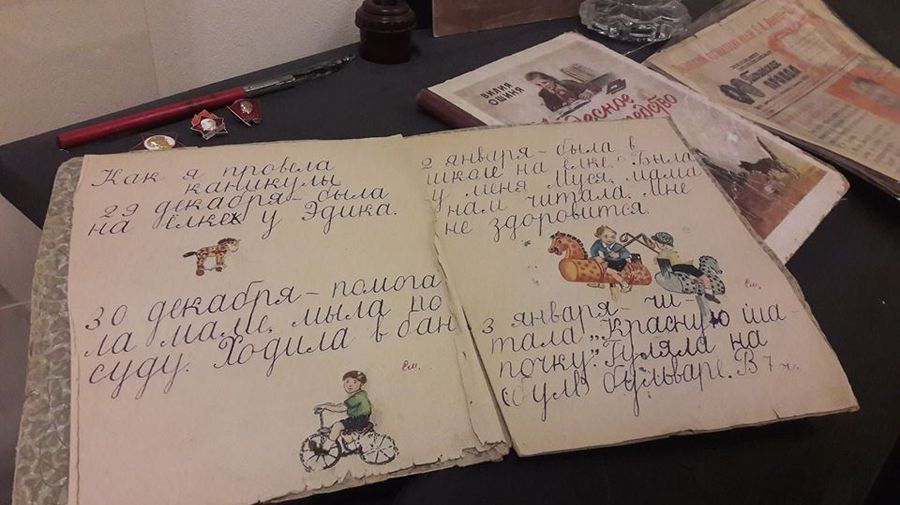 Как я провела
каникулы
29 декабря – была
на ёлках у Эдика.
30 декабря – помога
ла маме, мыла по
суду. Ходила в бан
Ем.
2 января – была в
школе на елке. Была
у меня Муся, мама
нам читала. Мне
не здоровится.
Ем.
3 января – чи-
тала „Красную ша-
почку". Гуляла на
бульваре. В 7 ч.
ВИЛИЯ
ОШИНЯ